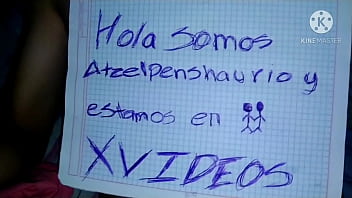 Hola somos
Atzelpenshaurio y
estamos en
XVIDEOS
KINEMASTER